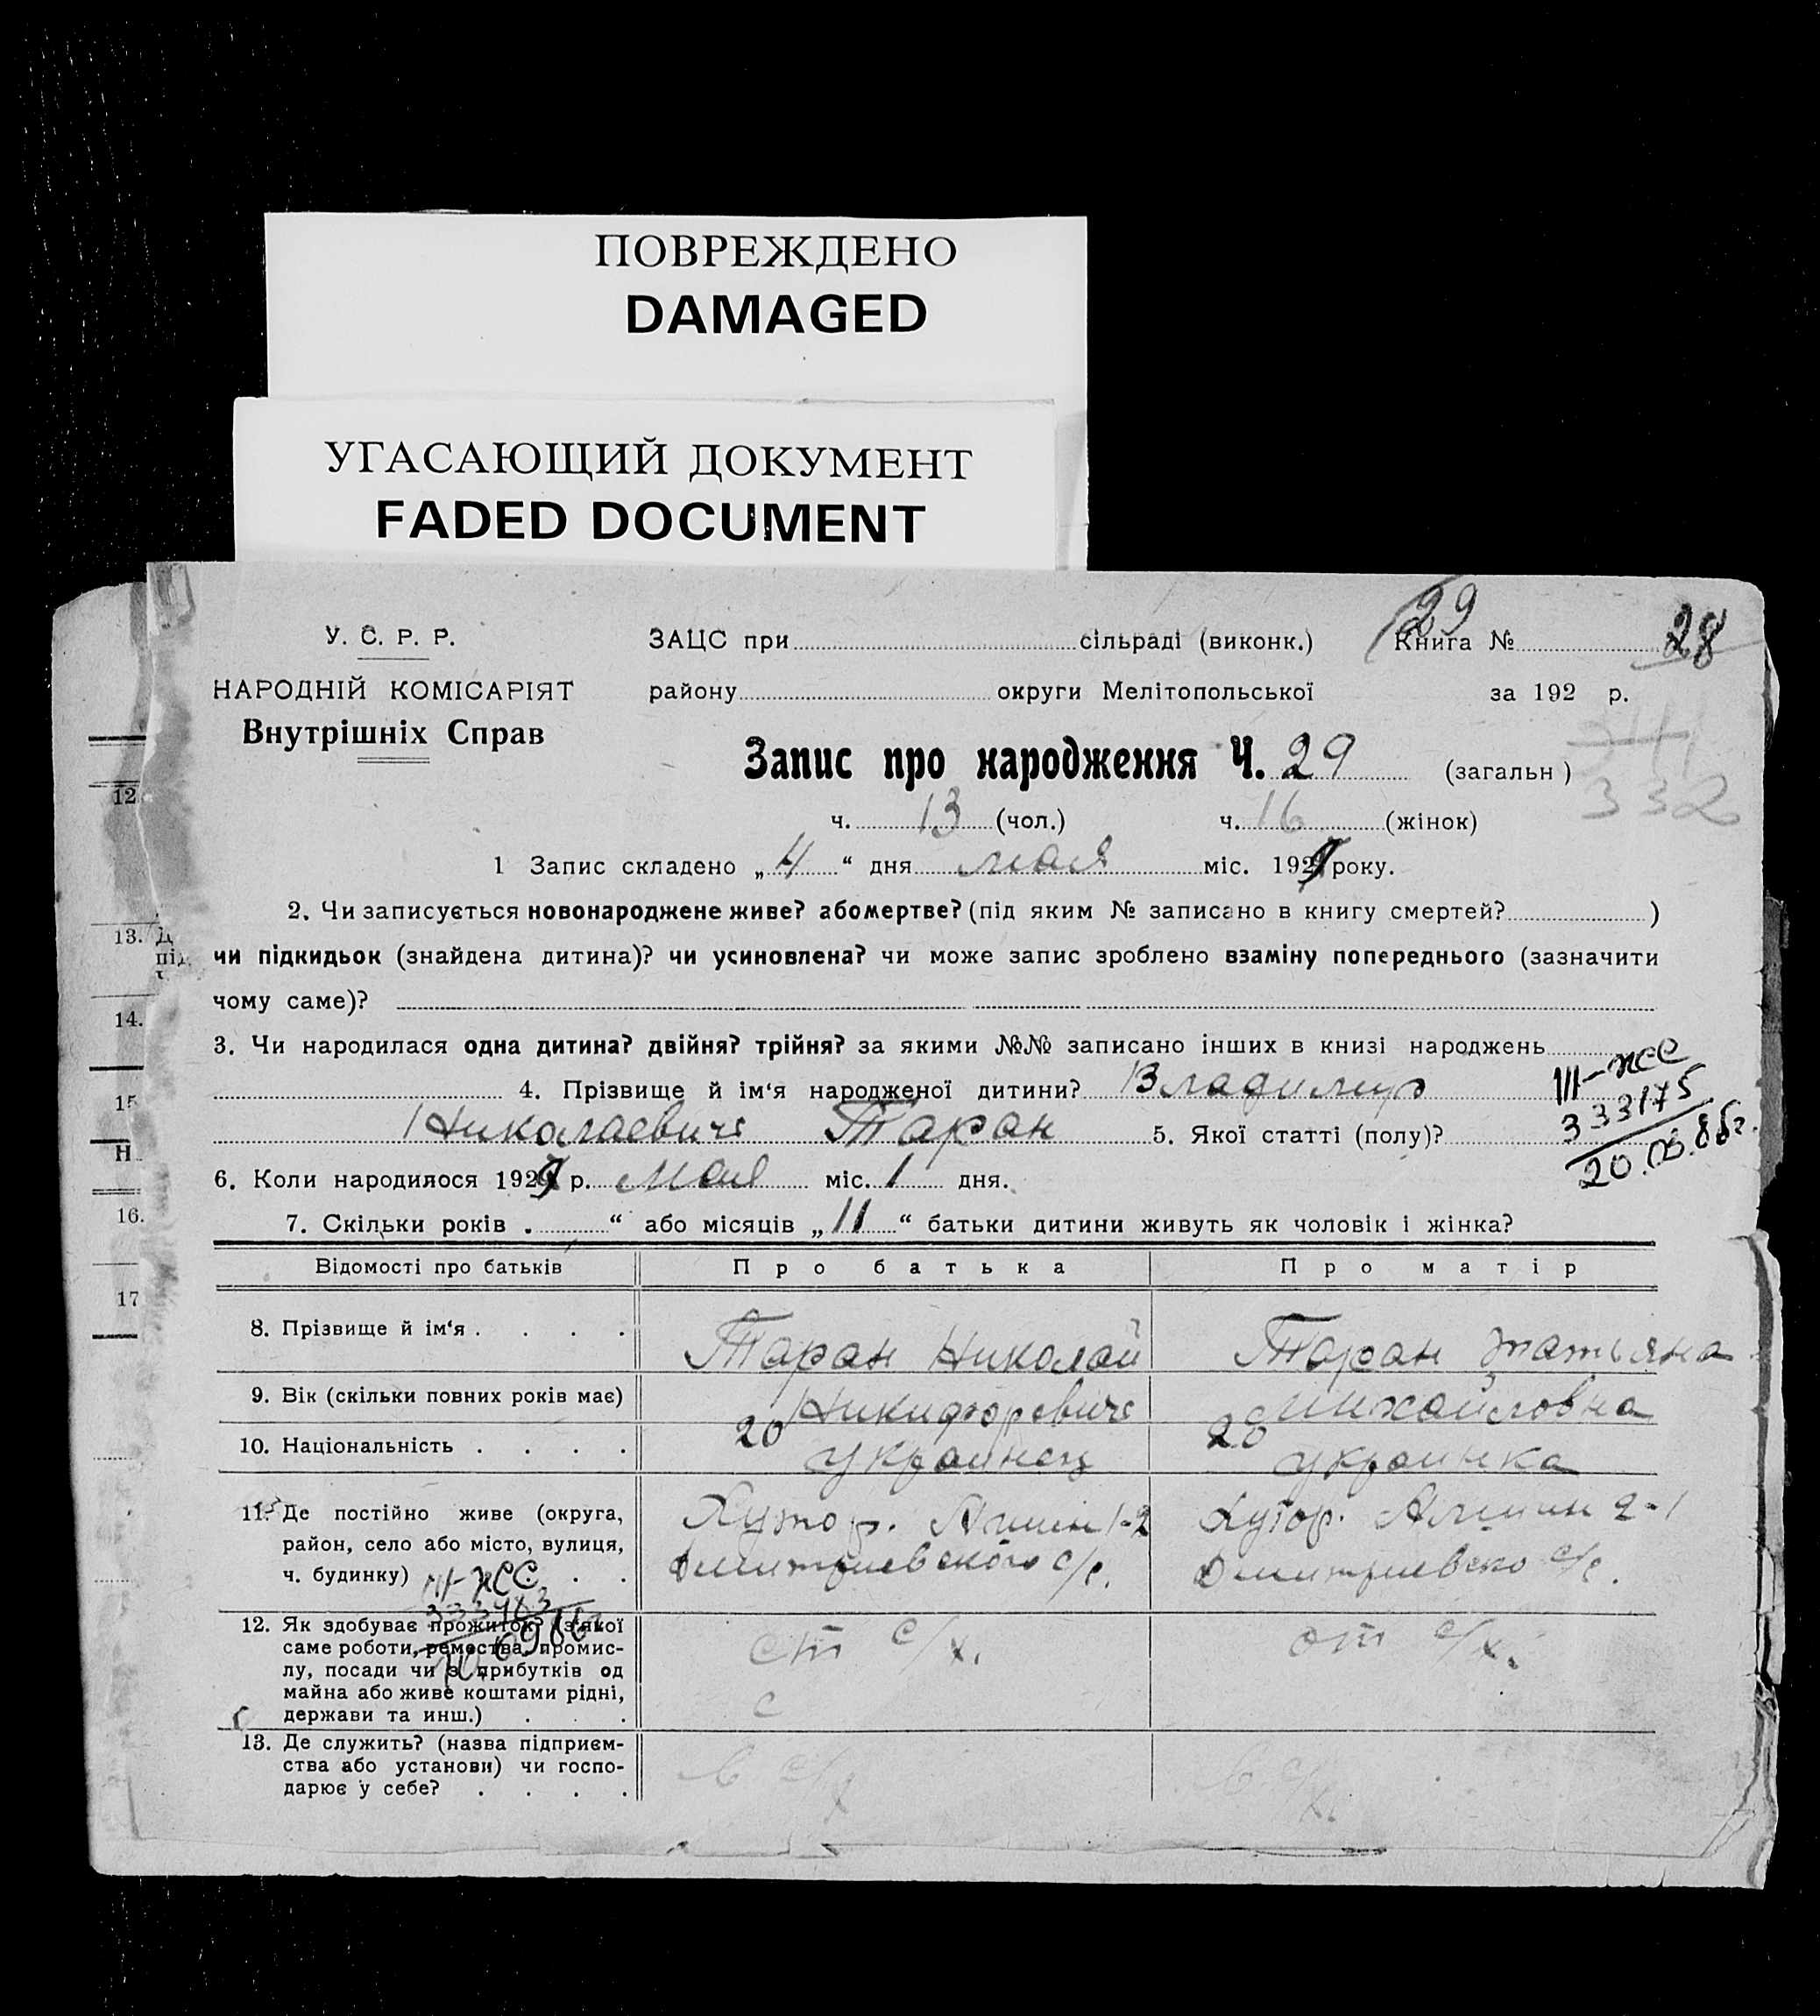 ПОВРЕЖДЕНО
DAMAGED
УГАСАЮЩИЙ ДОКУМЕНТ
FADED DOCUMENT
29
28
У. С. Р. Р.
НАРОДНІЙ КОМІСАРІЯТ
Внутрішніх Справ
ЗАЦС при сільраді (виконк.) Книга №
району округи Мелітопольської за 192 р.
Запис про народження Ч. 29 (загальн)
332
ч. 13 (чол.) ч. 16 (жінок)
1 Запис складено „4“ дня мая міс. 1929 року.
2. Чи записується новонароджене живе? або мертве? (під яким № записано в книгу смертей? )
чи підкидьок (знайдена дитина)? чи усиновлена? чи може запис зроблено взаміну попереднього (зазначити
чому саме)?
3. Чи народилася одна дитина? двійня? трійня? за якими №№ записано інших в книзі народжень
4. Прізвище й ім‘я народженої дитини? Владимир
Николаевич Таран 5. Якої статті (полу)?
III-ЖС
333175
6. Коли народилося 1929 р. мая міс. 1 дня.
7. Скільки років . “ або місяців „11“ батьки дитини живуть як чоловік і жінка?
Відомості про батьків Про батька Про матір
8. Прізвище й ім‘я . . . . Таран Николай Таран Татьяна
9. Вік (скільки повних років має) Никифорович Михайловна
20 20
10. Національність . . . . украинец украинка
11. Де постійно живе (округа,
район, село або місто, вулиця,
ч. будинку) . .
Хутор. 1-2
Дмитриевского с/с.
Хутор. 2-1
Дмитриевско с/с.
III-ЖС
12. Як здобуває прожиток? (з якої
саме роботи, ремества, промис-
лу, посади чи з прибутків од
майна або живе коштами рідні,
держави та инш.) . . .
от с/х. от с/х.
13. Де служить? (назва підприєм-
ства або установи) чи госпо-
дарює у себе? . . . .
в с/х в с/х.
12
13. Д
під
14.
15
Н
16.
17